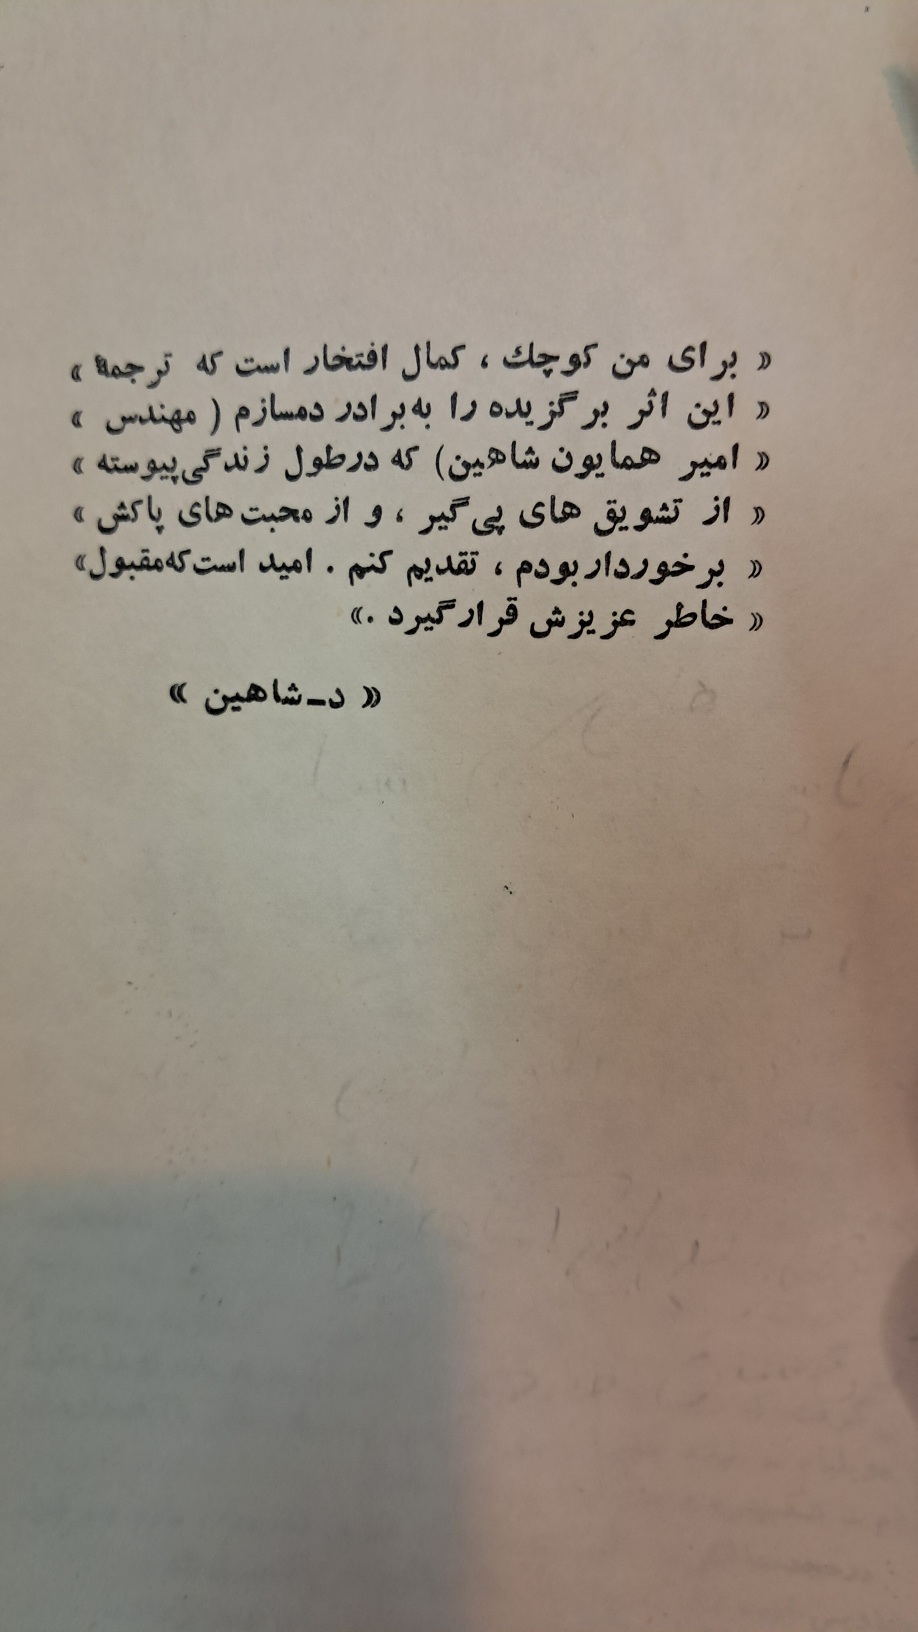 « برای من کوچك ، کمال افتخار است که ترجمهٔ »
« این اثر برگزیده را به‌برادر دمسازم ( مهندس »
« امیر همایون شاهین) که درطول زندگی‌پیوسته »
« از تشویق های پی‌گیر ، و از محبت‌های پاکش »
« برخوردار بودم ، تقدیم کنم . امید است‌که‌مقبول»
« خاطر عزیزش قرارگیرد .»
« د_شاهین »